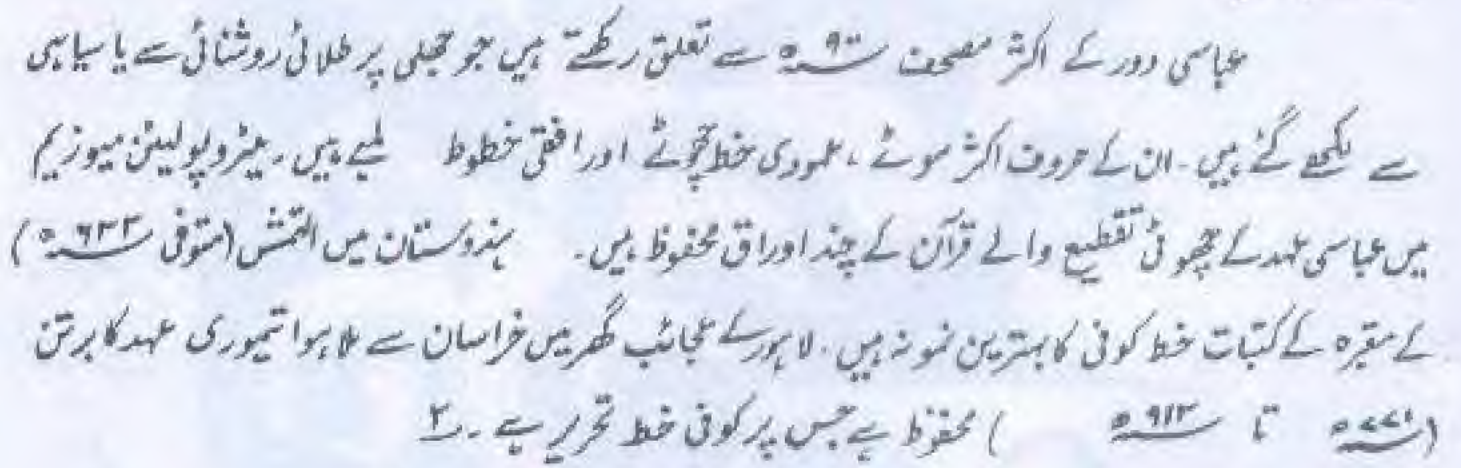 عباسی دور کے اکثر مصحف ۹۰۰ سے تعلق رکھتے ہیں جو جھلی پر طلائی روشنائی سے یا سیاہی
سے لکھے گئے ہیں۔ ان کے حروف اکثر موٹے، عمودی خط چھوٹے اور افقی خطوط لمبے ہیں۔ میٹروپولیٹن میوزیم
میں عباسی عہد کے چھوٹی تقطیع والے قرآن کے چند اوراق محفوظ ہیں۔ ہندوستان میں التمش (متوفی ۶۳۳ھ)
کے مقبرہ کے کتبات خط کوفی کا بہترین نمونہ ہیں۔ لاہور کے عجائب گھر میں خراسان سے ملا ہوا تیموری عہد کا برتن
(۷۷۱ھ تا ۹۱۲ھ) محفوظ ہے جس پر کوفی خط تحریر ہے۔ ۲